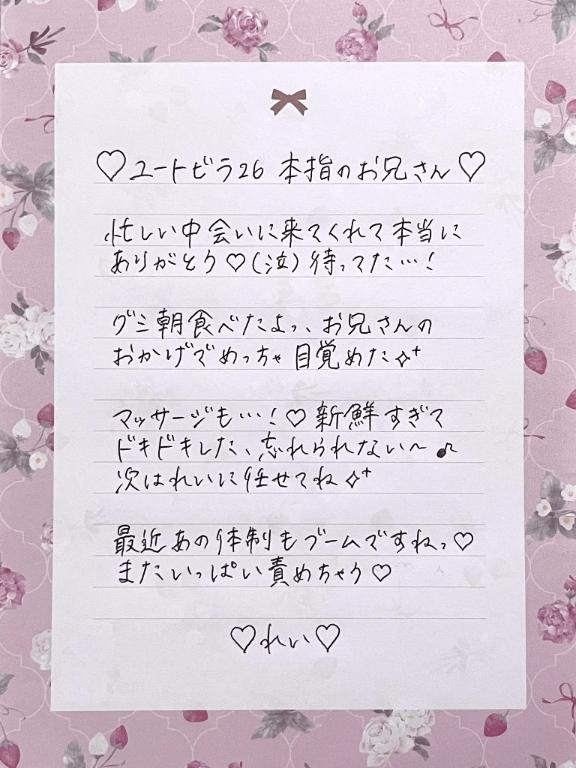 ♡ユートピラ26 本指のお兄さん♡
忙しい中会いに来てくれて本当に
ありがとう♡(泣)待ってた…!
グミ朝食べたよっ、お兄さんの
おかげでめっちゃ目覚めた✧⁺
マッサージも…!♡新鮮すぎて
ドキドキした、忘れられない〜♪
次はれいに任せてね✧⁺
最近あの体制もブームですねっ♡
またいっぱい責めちゃう♡
♡れい♡